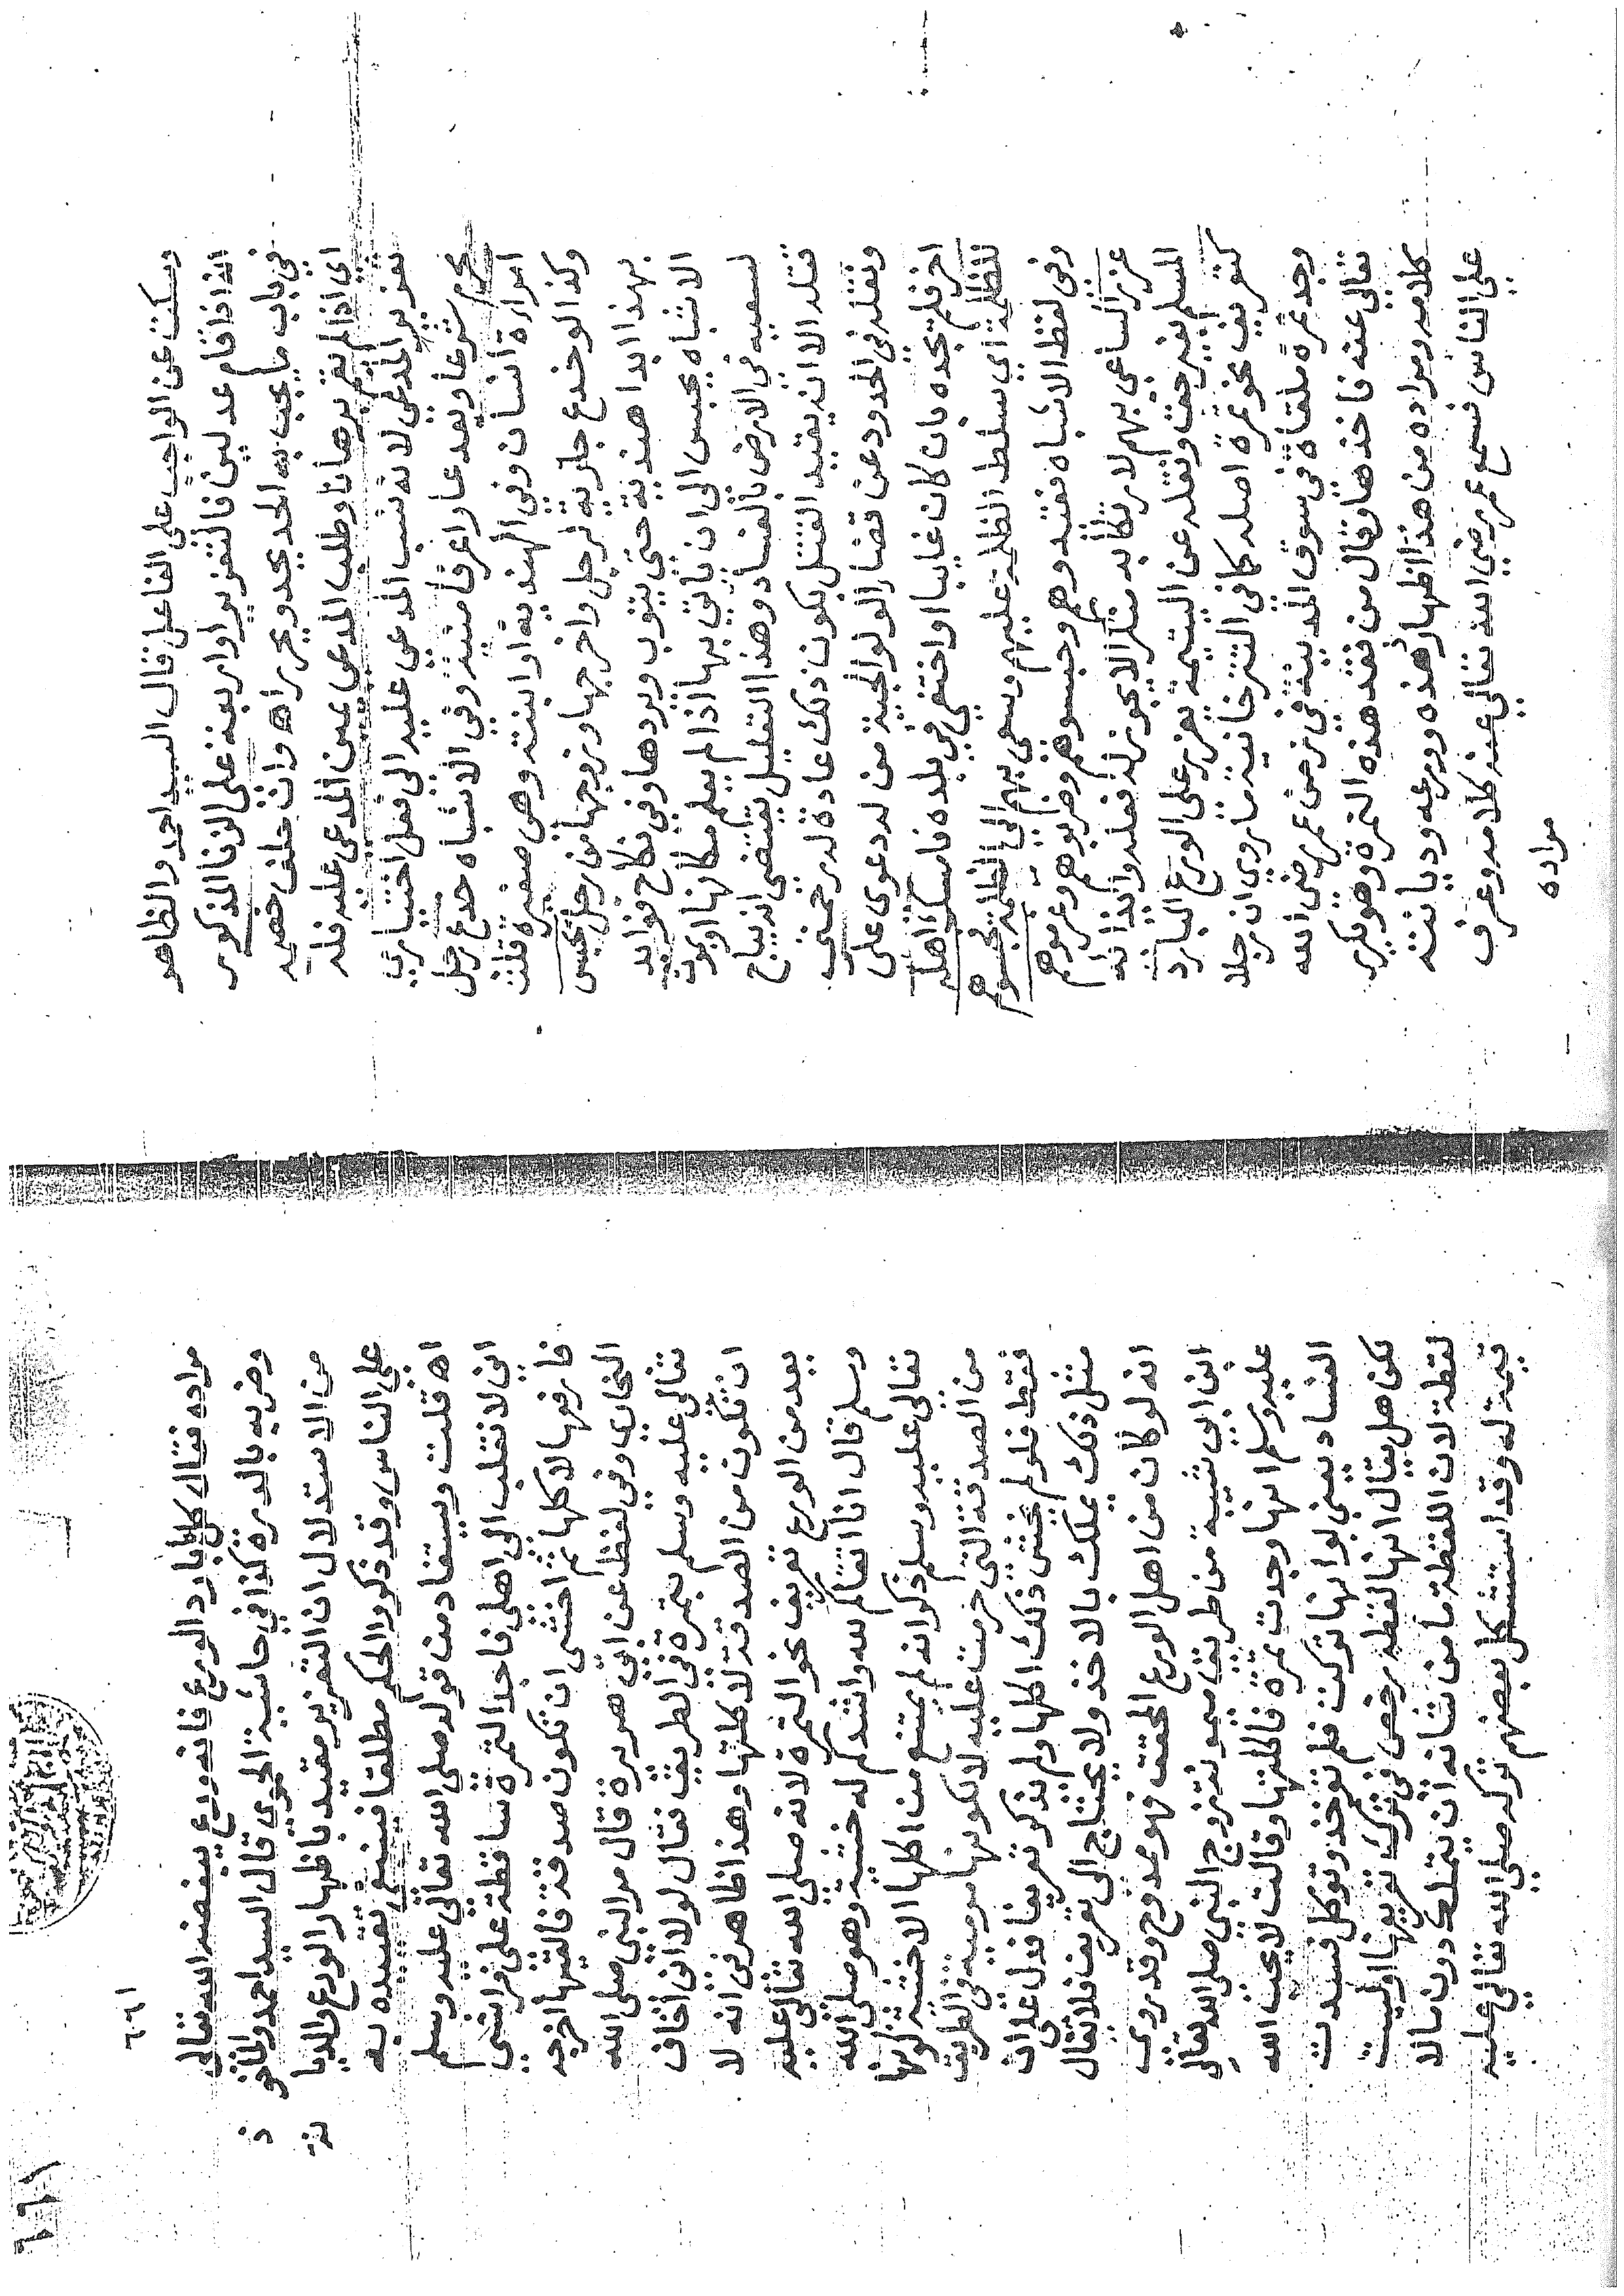 وسكت عن الواجب على الفاعل قال السيد احمد والظاهر
انه اذا قام عدلين فالتعزير او اربعة على الزنا المذكور
في باب ما يجب به الحد يحد ويحرر اه وان خلف خصمه
اي اذا لم يقم برهانا وطلب المدعي يمين المدعى عليه فله
تعزير المدعي لانه نسب المدعى عليه الى فعل اختياري
محرم شرعا ويعد عارا عرفا منية وفي الاشباه خدع رجل
امراة انسان وفي الهندية او ابنته وهي صغيرة قلت
وكذا لو خدع جارية لرجل واخرجها وزوجها من رجل يحبس
بهذا ابدا هندية حتى يتوب ويردها وفي نكاح فوايد
الاشباه يحبس الى ان ياتي بها اذا لم يعلم مكانها او يموت
لسعيه في الارض بالفساد وهذا التعليل يقتضي انه يباح
قتله الا ان يقيد القتل بكون ذلك عادة له رحمتي
ونقله في الحدود عن قضا الولوالجية من له دعوى على
اخر فلم يجده بان كان غايبا او اختفى في بلده فامسك اهله
للظلمة اي سلط الظلمة عليهم وسعى بهم الى الظلمة فحبسوهم
وفي لفظ الاشباه تقيد وهم وحبسوهم وضربوهم وغرموهم
عزر الساعي بهم لارتكابه منكرا لا يجوز له فعله وايذاءه
المسلم بغير حق ونقله عن اليتيمة يعزر على الورع البارد
كتعريف نحو تمرة اصله كما في التترخانية ما روي ان رجلا
وجد تمرة ملقاة في سوق المدينة في زمن عمر رضي الله
تعالى عنه فاخذها وقال من فقد هذه التمرة وهو يكرر
كلامه ومراده من هذا اظهار زهده وورعه وديانته
على الناس فسمع عمر رضي الله تعالى عنه كلامه وعرف
مراده
١٦٦
مراده فقال كل يا بارد الورع فانه ورع يبغضه الله تعالى
وضربه بالدرة كذا في حاشية الحموي قال السيد احمد والماخوذ
من الاستدلال ان التعزير مقيد باظهار الورع والديانة
على الناس وقد ذكروا الحكم مطلقا فينبغي تقييده به
اه قلت ويستفاد من قوله صلى الله تعالى عليه وسلم
اني لانقلب الى اهلي فاجد التمرة ساقطة على فراشي
فارفعها لاكلها ثم اخشى ان تكون صدقة فالقيها اخرجه
البخاري وفي لفظ عن ابي هريرة قال مر النبي صلى الله
تعالى عليه وسلم بتمرة في الطريق فقال لولا اني اخاف
ان تكون من الصدقة لاكلتها وهذا ظاهر في انه لا
يعد من الورع تعريف نحو التمرة لانه صلى الله تعالى عليه
وسلم قال انا اتقاكم لله واشدكم له خشية وهو صلى الله
تعالى عليه وسلم ذكر انه لم يمتنع من اكلها الا خشية كونها
من الصدقة التي حرمت عليه لا لكونها مرمية في الطريق
فقط فلو لم يخش ذلك اكلها ولم يذكر تعريفا فدل على ان
مثل ذلك يملك بالاخذ ولا يحتاج الى تعريف فلا يقال
انه لو كان من اهل الورع المحقق فهو ممدوح وقد روى
ابن ابي شيبة من طريق ميمونة زوج النبي صلى الله تعالى
عليه وسلم انها وجدت تمرة فاكلتها وقالت لا يحب الله
الفساد يعني لو انها تركت فلم توخذ وتوكل فسدت
لكن هل يقال انها لقطة رخص في ترك تعريفها او ليست
لقطة لان اللقطة ما من شانه ان يتملك دون ما لا
قيمة له وقد استشكل بعضهم تركه صلى الله تعالى عليه